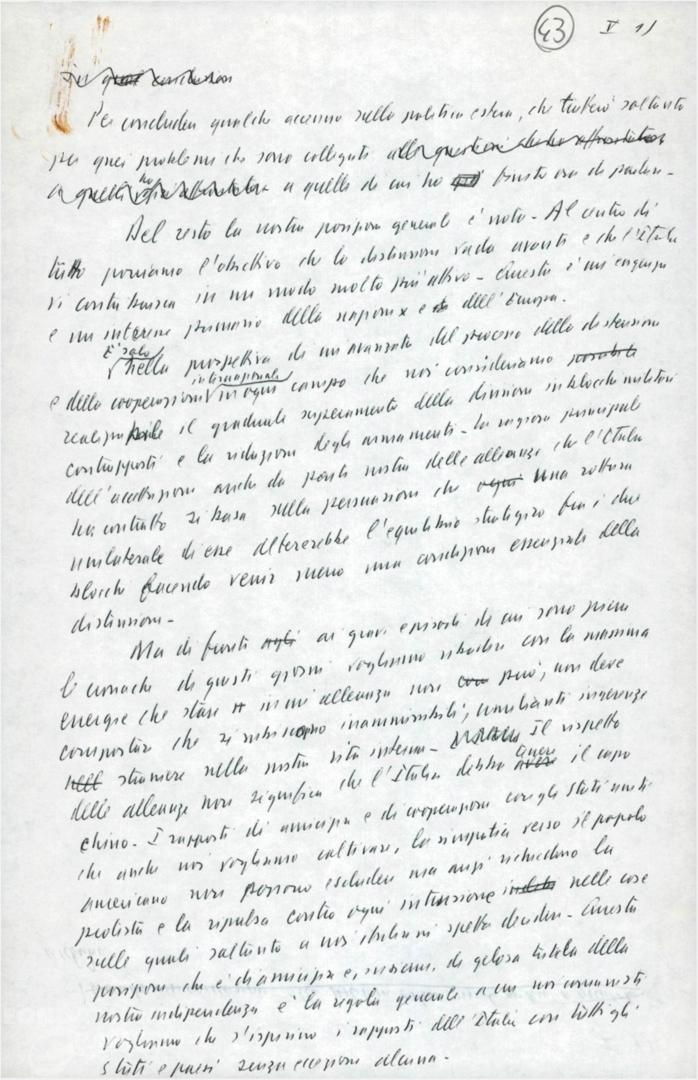 43 V 11
In quel conclusion
Per concludere qualche accenno sulla politica estera, che tratterò soltanto
per quei problemi che sono collegati alle questioni che ho affrontato
a quelli a quelle di cui ho finito ora di parlare -
Del resto la nostra posizione generale è nota - Al centro di
tutto poniamo l'obiettivo che la distensione vada avanti e che l'Italia
vi contribuisca in un modo molto più attivo - Questa è un'esigenza
e un interesse primario della nazione e dell'Europa.
È solo
nella prospettiva di un'avanzata del processo della distensione
internazionale
e della cooperazione in ogni campo che noi consideriamo possibile
realizzabile il graduale superamento della divisione in blocchi militari
contrapposti e la riduzione degli armamenti - La ragione principale
dell'accettazione anche da parte nostra delle alleanze che l'Italia
ha contratto si basa sulla persuasione che ogni una rottura
unilaterale di esse altererebbe l'equilibrio strategico fra i due
blocchi facendo venir meno una condizione essenziale della
distensione -
Ma di fronte agli ai gravi episodi di cui sono piene
le cronache di questi giorni vogliamo ribadire con la massima
energia che stare in un'alleanza non può, non deve
comportare che si subiscano inammissibili, umilianti ingerenze
straniere nella nostra vita interna - Il rispetto
delle alleanze non significa che l'Italia debba avere il capo
chino - I rapporti di amicizia e di cooperazione con gli Stati Uniti
che anche noi vogliamo coltivare, la simpatia verso il popolo
americano non possono escludere ma anzi richiedono la
protesta e la ripulsa contro ogni intrusione nelle cose
sulle quali soltanto a noi italiani spetta decidere - Questa
posizione che è di amicizia e, insieme, di gelosa tutela della
nostra indipendenza è la regola generale a cui noi comunisti
vogliamo che s'ispirino i rapporti dell'Italia con tutti gli
Stati e paesi senza eccezione alcuna -